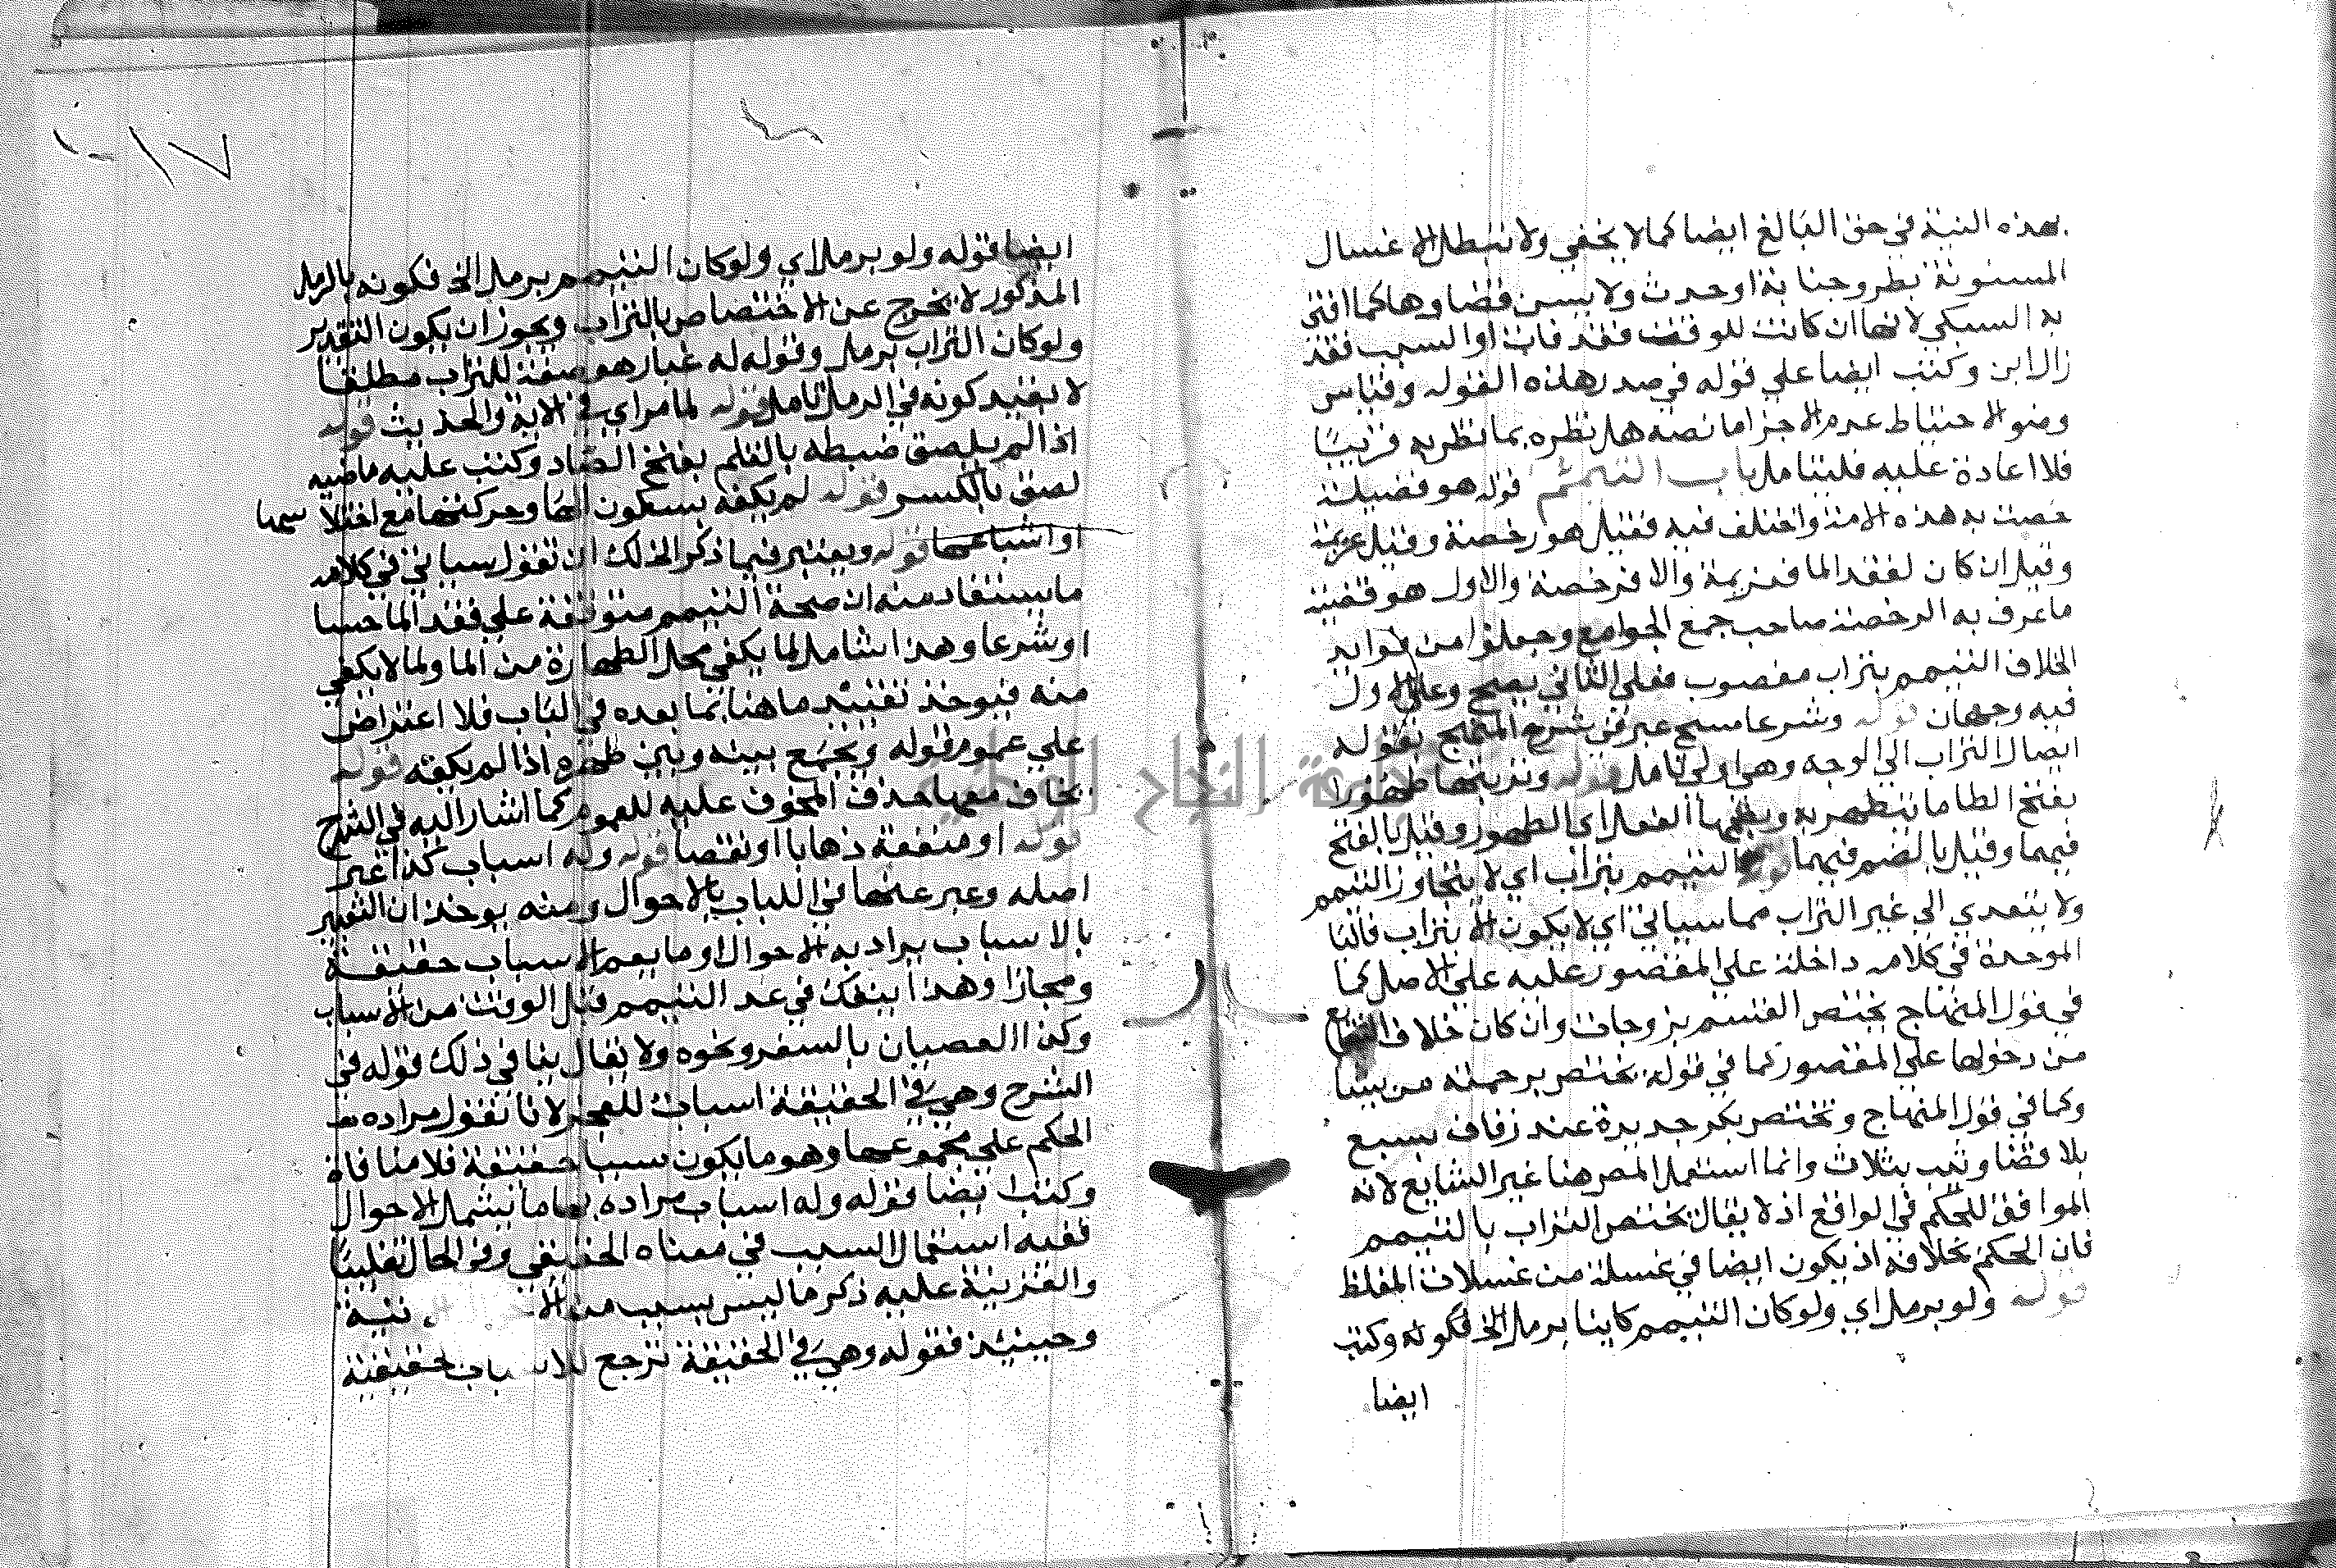 بهذه النية في حق البالغ ايضا كما لا يخفي ولا تبطل الاغسال
المسنونة بطرو جنابة او حدث ولا يسن قضاوها كما افتى
به السبكي لانها ان كانت للوقت فقد فات او السبب فقد
زال ابن وكتب ايضا علي قوله في صدر هذه القوله وقياس
وضو الاحتياط عدم الاجزا ما نصه هل نظره بما نظر به قريبا
فلا اعادة عليه فليتامل باب التيمم قوله هو فضيلة
خصت به هذه الامة واختلف فيه فقيل هو رخصة وقيل عزيمة
وقيل ان كان لفقد الما فعزيمة والا فرخصة والاول هو قضية
ما عرف به الرخصة صاحب جمع الجوامع وجعلوا من فوايد
الخلاف التيمم بتراب مغصوب فعلي الثاني يصح وعلي الاول
فيه وجهان قوله وشرعا مسح عبر في شرح المنهج بقوله
ايصال التراب الي الوجه وهي اولي تامل قوله وتربتها طهورا
بفتح الطا ما تتطهر به وبضمها الفعل اي الطهور وقيل بالفتح
فيهما وقيل بالضم فيهما قوله التيمم بتراب اي لا يتجاوز التيمم
ولا يتعدي الي غير التراب مما سياتي اي لا يكون الا بتراب فالبا
الموحدة في كلامه داخلة علي المقصور عليه علي الاصل كما
في قول المنهاج يختص القسم بزوجات وان كان خلاف الشايع
من دخولها علي المقصور كما في قوله يختص برحمته من يشا
وكما في قول المنهاج وتختص بكر جديدة عند زفاف بسبع
بلا قضا وثيب بثلاث وانما استعمل المص هنا غير الشايع لانه
الموافق للحكم في الواقع اذ لا يقال يختص التراب بالتيمم
فان الحكم بخلافه اذ يكون ايضا في غسلة من غسلات المغلظ
قوله ولو برمل اي ولو كان التيمم كاينا برمل الخ فكونه وكتب
ايضا
ايضا قوله ولو برمل اي ولو كان التيمم برمل الخ فكونه بالرمل
المذكور لا يخرج عن الاختصاص بالتراب ويجوز ان يكون التقدير
ولو كان التراب برمل وقوله له غبار هو صفة للتراب مطلقا
لا بقيد كونه في الرمل تامل قوله لما مر اي في الاية والحديث قوله
اذا لم يلصق ضبطه بالقلم بفتح الصاد وكتب عليه ماضيه
لصق بالكسر قوله لم يكفه بسكون الها وحركتها مع اختلاسها
او اشباعها قوله ويعتبر فيما ذكر الخ لك ان تقول سياتي في كلامه
ما يستفاد منه ان صحة التيمم متوقفة علي فقد الما حسا
او شرعا وهذا شامل لما يكفي محل الطهارة من الما ولما لا يكفي
منه فيوخذ تقييد ما هنا بما بعده في الباب فلا اعتراض
علي عموم قوله ويجمع بينه وبين طهره اذا لم يكفه قوله
يخاف معها حذف المخوف عليه للعموم كما اشار اليه في الشرح
قوله او منفعة ذهابا او نقصا قوله وله اسباب كذا عبر
اصله وعبر عنها في اللباب بالاحوال ومنه يوخذ ان التعبير
بالاسباب يراد به الاحوال او ما يعم الاسباب حقيقة
ومجازا وهذا ينفك في عد التيمم قبل الوقت من الاسباب
وكذا العصيان بالسفر ونحوه ولا يقال ينافي ذلك قوله في
الشرح وهي في الحقيقة اسباب للعجز لانا نقول مراده
الحكم علي مجموعها وهو ما يكون سببا حقيقة فلا منافاة
وكتب ايضا قوله وله اسباب مراده بها ما يشمل الاحوال
ففيه استعمال السبب في معناه الحقيقي وفي الحال تغليبا
والقرينة عليه ذكر ما ليس بسبب من
وحينئذ فقوله وهي في الحقيقة ترجع للاسباب الحقيقية